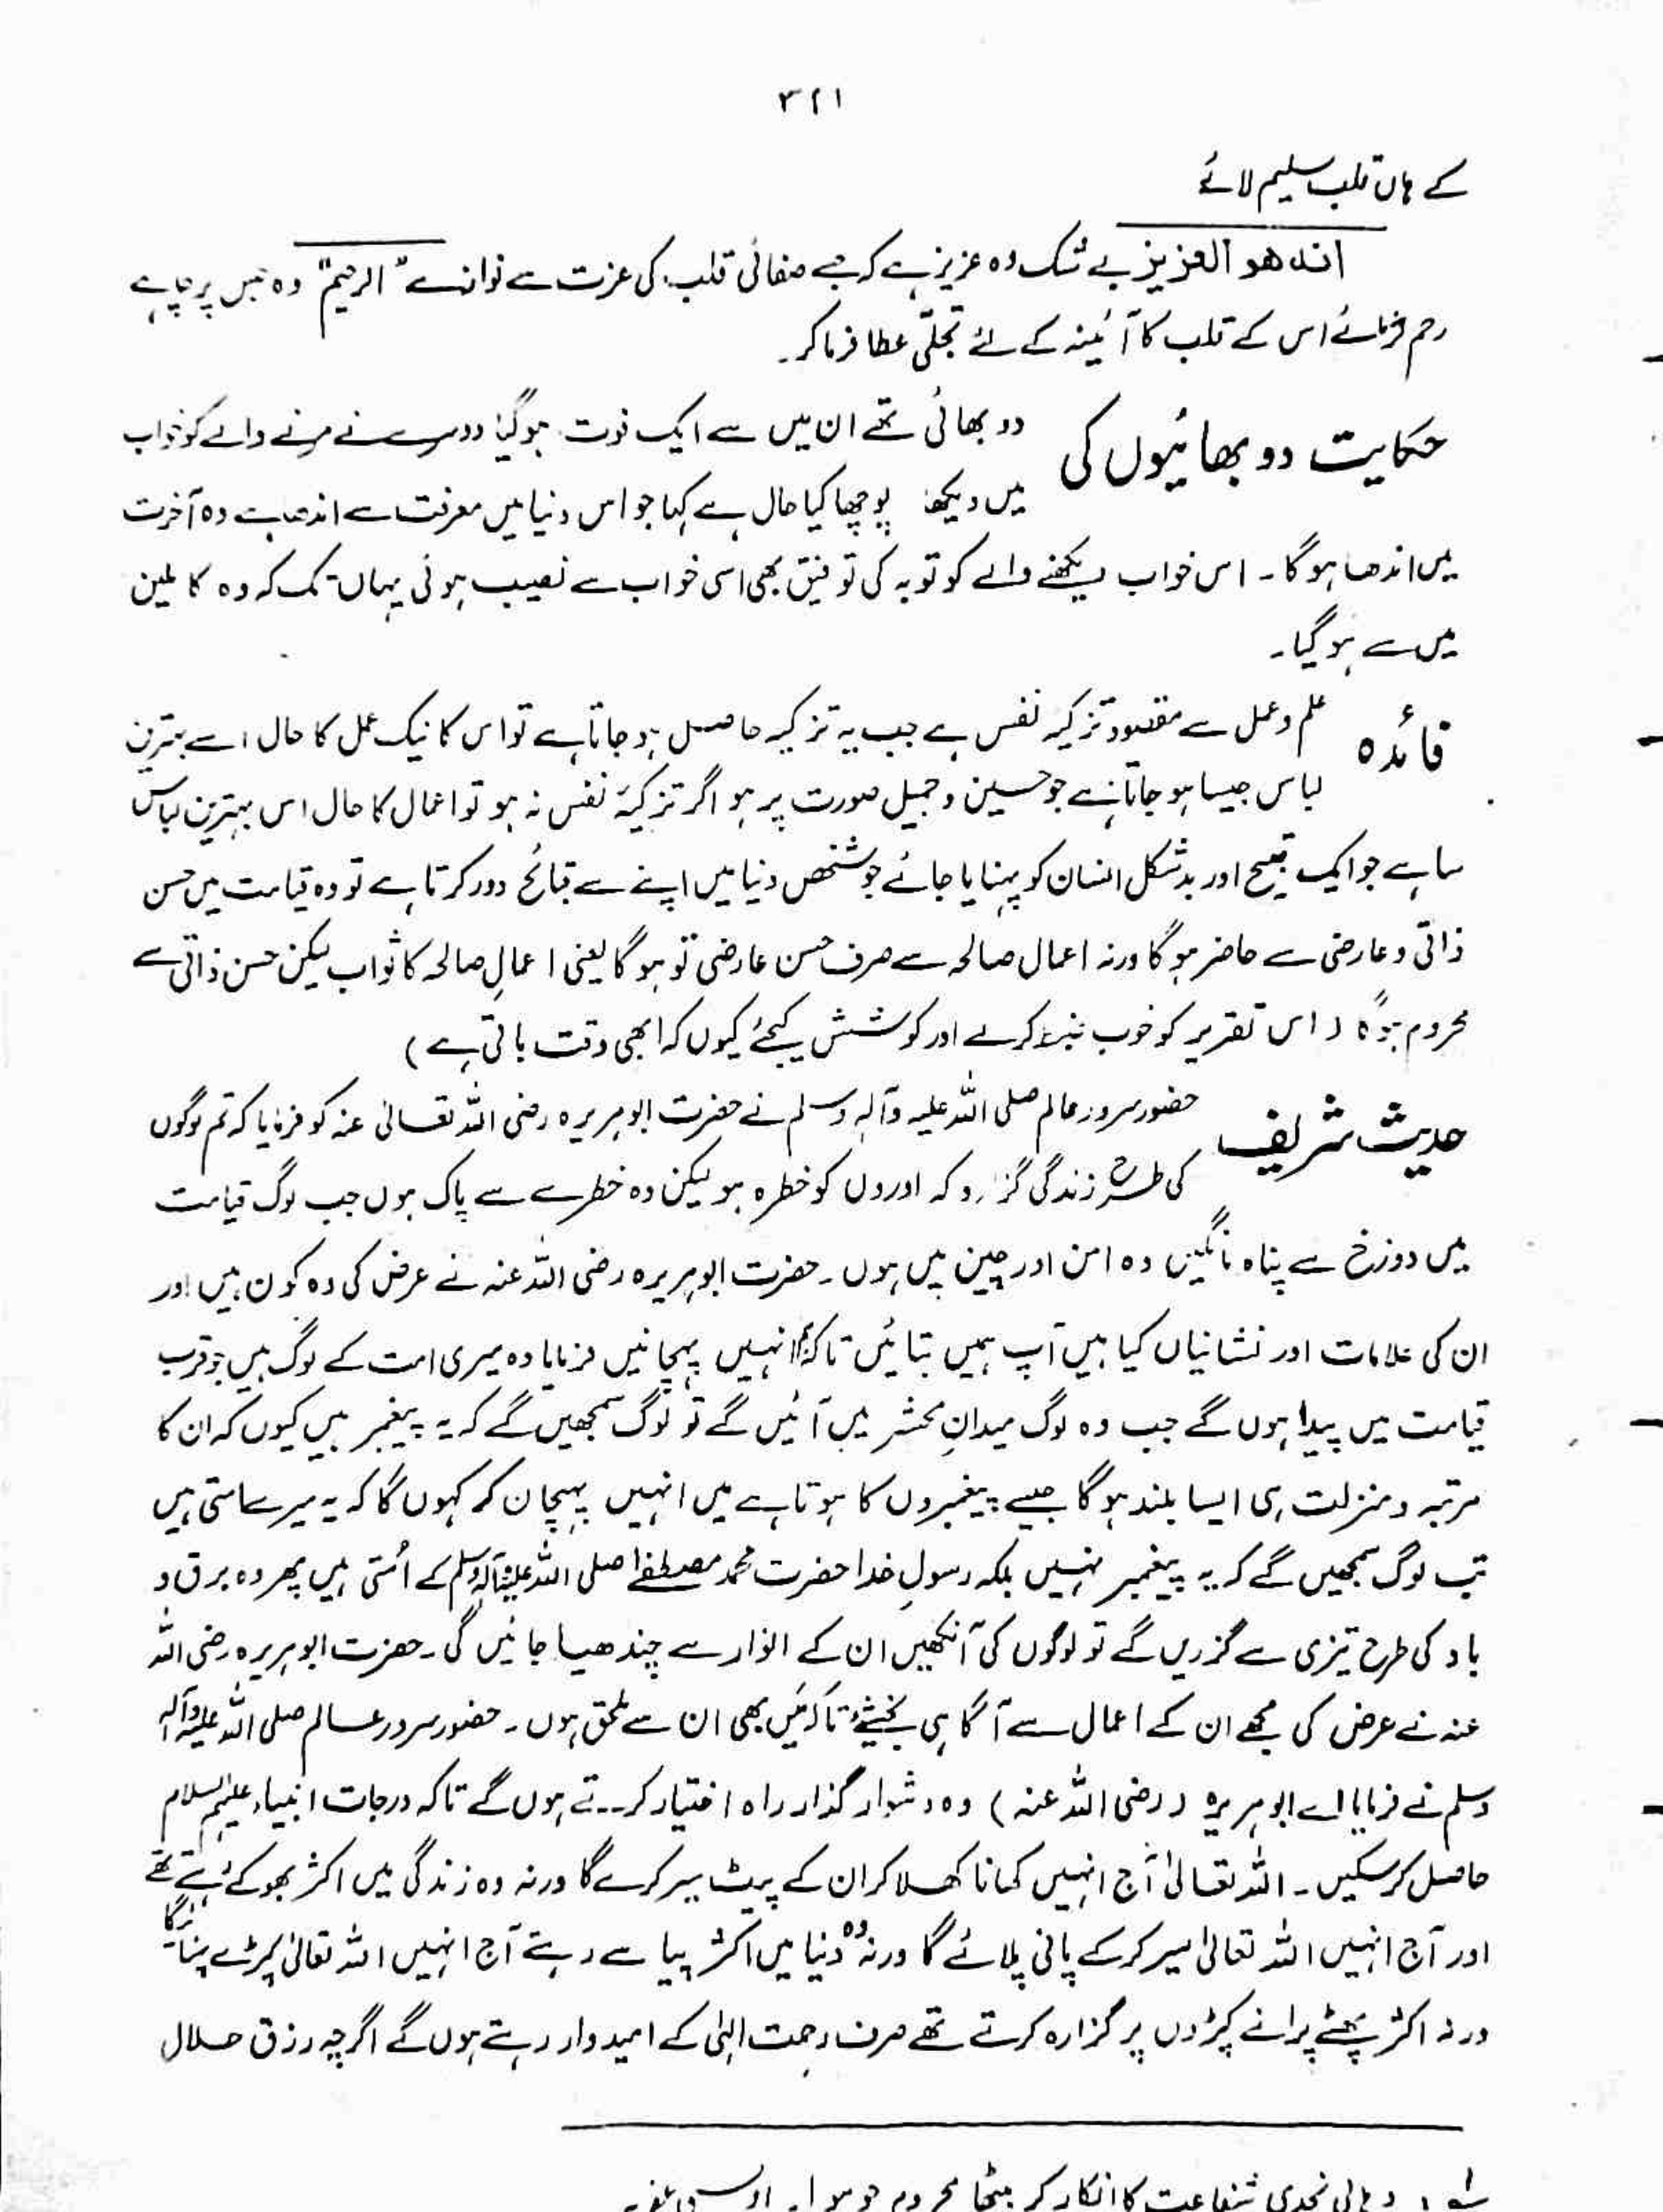 ۳۲۱
کے ہاں قلب سلیم لائے
انہ ھو العزیز بے شک وہ عزیز ہے کہ جسے صفائی قلب کی عزت سے نوازے "الرحیم" وہ جس پر چاہے
رحم فرمائے اس کے قلب کا آئینہ کے لئے تجلّی عطا فرماکر۔
حکایت دو بھائیوں کی
دو بھائی تھے ان میں سے ایک فوت ہوگیا دوسرے نے مرنے والے کو خواب
میں دیکھا پوچھا کیا حال ہے کہا جو اس دنیا میں معرفت سے اندھا ہے وہ آخرت
میں اندھا ہوگا۔ اس خواب دیکھنے والے کو توبہ کی توفیق بھی اسی خواب سے نصیب ہوئی یہاں تک کہ وہ کاملین
میں سے ہوگیا۔
فائدہ
علم و عمل سے مقصود تزکیہ نفس ہے جب یہ تزکیہ حاصل ہوجاتا ہے تو اس کا نیک عمل کا حال اسے بہترین
لباس جیسا ہوجاتا ہے جو حسین و جمیل صورت پر ہو اگر تزکیۂ نفس نہ ہو تو اعمال کا حال اس بہترین لباس
سا ہے جو ایک قبیح اور بدشکل انسان کو پہنایا جائے جو شخص دنیا میں اپنے سے قبائح دور کرتا ہے تو وہ قیامت میں حسن
ذاتی و عارضی سے حاضر ہوگا ورنہ اعمال صالحہ سے صرف حسن عارضی تو ہوگا یعنی اعمالِ صالحہ کا ثواب لیکن حسن ذاتی سے
محروم ہوگا (اس تقریر کو خوب ضبط کرلے اور کوشش کیجئے کیوں کہ ابھی وقت باقی ہے)
حدیث شریف
حضور سرور عالم صلی اللہ علیہ وآلہ وسلم نے حضرت ابوہریرہ رضی اللہ تعالیٰ عنہ کو فرمایا کہ تم لوگوں
کی طرح زندگی گزارو کہ اوروں کو خطرہ ہو لیکن وہ خطرے سے پاک ہوں جب لوگ قیامت
میں دوزخ سے پناہ مانگیں وہ امن اور چین میں ہوں۔ حضرت ابوہریرہ رضی اللہ عنہ نے عرض کی وہ کون ہیں اور
ان کی علامات اور نشانیاں کیا ہیں آپ ہمیں بتائیں تاکہ ہم انہیں پہچانیں فرمایا وہ میری امت کے لوگ ہیں جو قرب
قیامت میں پیدا ہوں گے جب وہ لوگ میدانِ محشر میں آئیں گے تو لوگ سمجھیں گے کہ یہ پیغمبر ہیں کیوں کہ ان کا
مرتبہ و منزلت ہی ایسا بلند ہوگا جیسے پیغمبروں کا ہوتا ہے میں انہیں پہچان کر کہوں گا کہ یہ میرے امتی ہیں
تب لوگ سمجھیں گے کہ یہ پیغمبر نہیں بلکہ رسولِ خدا حضرت محمد مصطفےٰ صلی اللہ علیہ وآلہ وسلم کے اُمتی ہیں پھر وہ برق و
باد کی طرح تیزی سے گزریں گے تو لوگوں کی آنکھیں ان کے انوار سے چندھیا جائیں گی۔ حضرت ابوہریرہ رضی اللہ
عنہ نے عرض کی مجھے ان کے اعمال سے آگاہی بخشیئے تاکہ میں بھی ان سے ملحق ہوں۔ حضور سرور عالم صلی اللہ علیہ وآلہ
وسلم نے فرمایا اے ابوہریرہ (رضی اللہ عنہ) وہ دشوار گذار راہ اختیار کرتے ہوں گے تاکہ درجات انبیاء علیہم السلام
حاصل کرسکیں۔ اللہ تعالیٰ آج انہیں کھانا کھلا کر ان کے پیٹ سیر کرے گا ورنہ وہ زندگی میں اکثر بھوکے رہتے تھے
اور آج انہیں اللہ تعالیٰ سیر کرکے پانی پلائے گا ورنہ وہ دنیا میں اکثر پیاسے رہتے آج انہیں اللہ تعالیٰ کپڑے پہنائے گا
ورنہ اکثر پھٹے پرانے کپڑوں پر گزارہ کرتے تھے صرف رحمت الٰہی کے امیدوار رہتے ہوں گے اگرچہ رزق حلال
وہابی نجدی شفاعت کا انکار کر بیٹھا محروم جو ہوا۔ اویسی غفرلہ